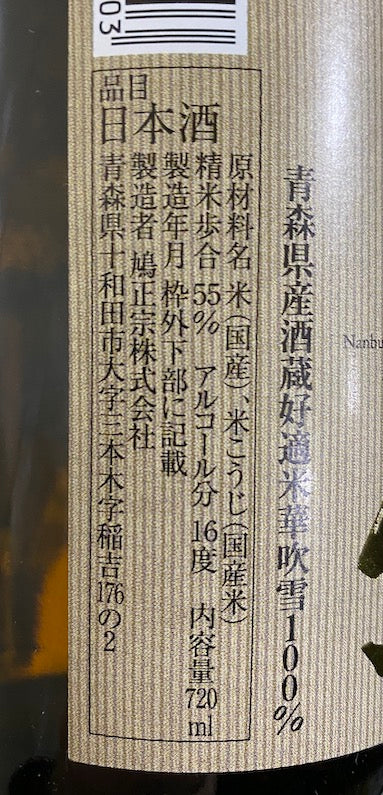 青森県産酒蔵好適米華吹雪100%
品目
日本酒
原材料名 米(国産)、米こうじ(国産米)
精米歩合 55% アルコール分 16度 内容量 720ml
製造年月 枠外下部に記載
製造者 鳩正宗株式会社
青森県十和田市大字三本木字稲吉176の2
03
Nanbu